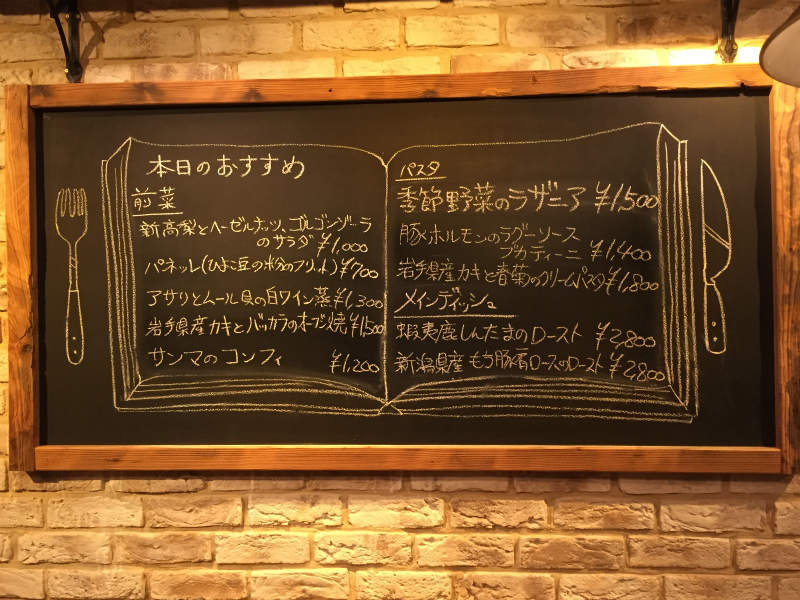 本日のおすすめ
前菜
新高梨とヘーゼルナッツ、ゴルゴンゾーラ
のサラダ ¥1,000
パネッレ(ひよこ豆の粉のフリット) ¥700
アサリとムール貝の白ワイン蒸 ¥1,300
岩手県産カキとバッカラのオーブン焼 ¥1,500
サンマのコンフィ ¥1,200
パスタ
季節野菜のラザニア ¥1,500
豚ホルモンのラグーソース
ブカティーニ ¥1,400
岩手県産カキと春菊のクリームパスタ ¥1,800
メインディッシュ
蝦夷鹿しんたまのロースト ¥2,800
新潟県産もち豚肩ロースのロースト ¥2,800